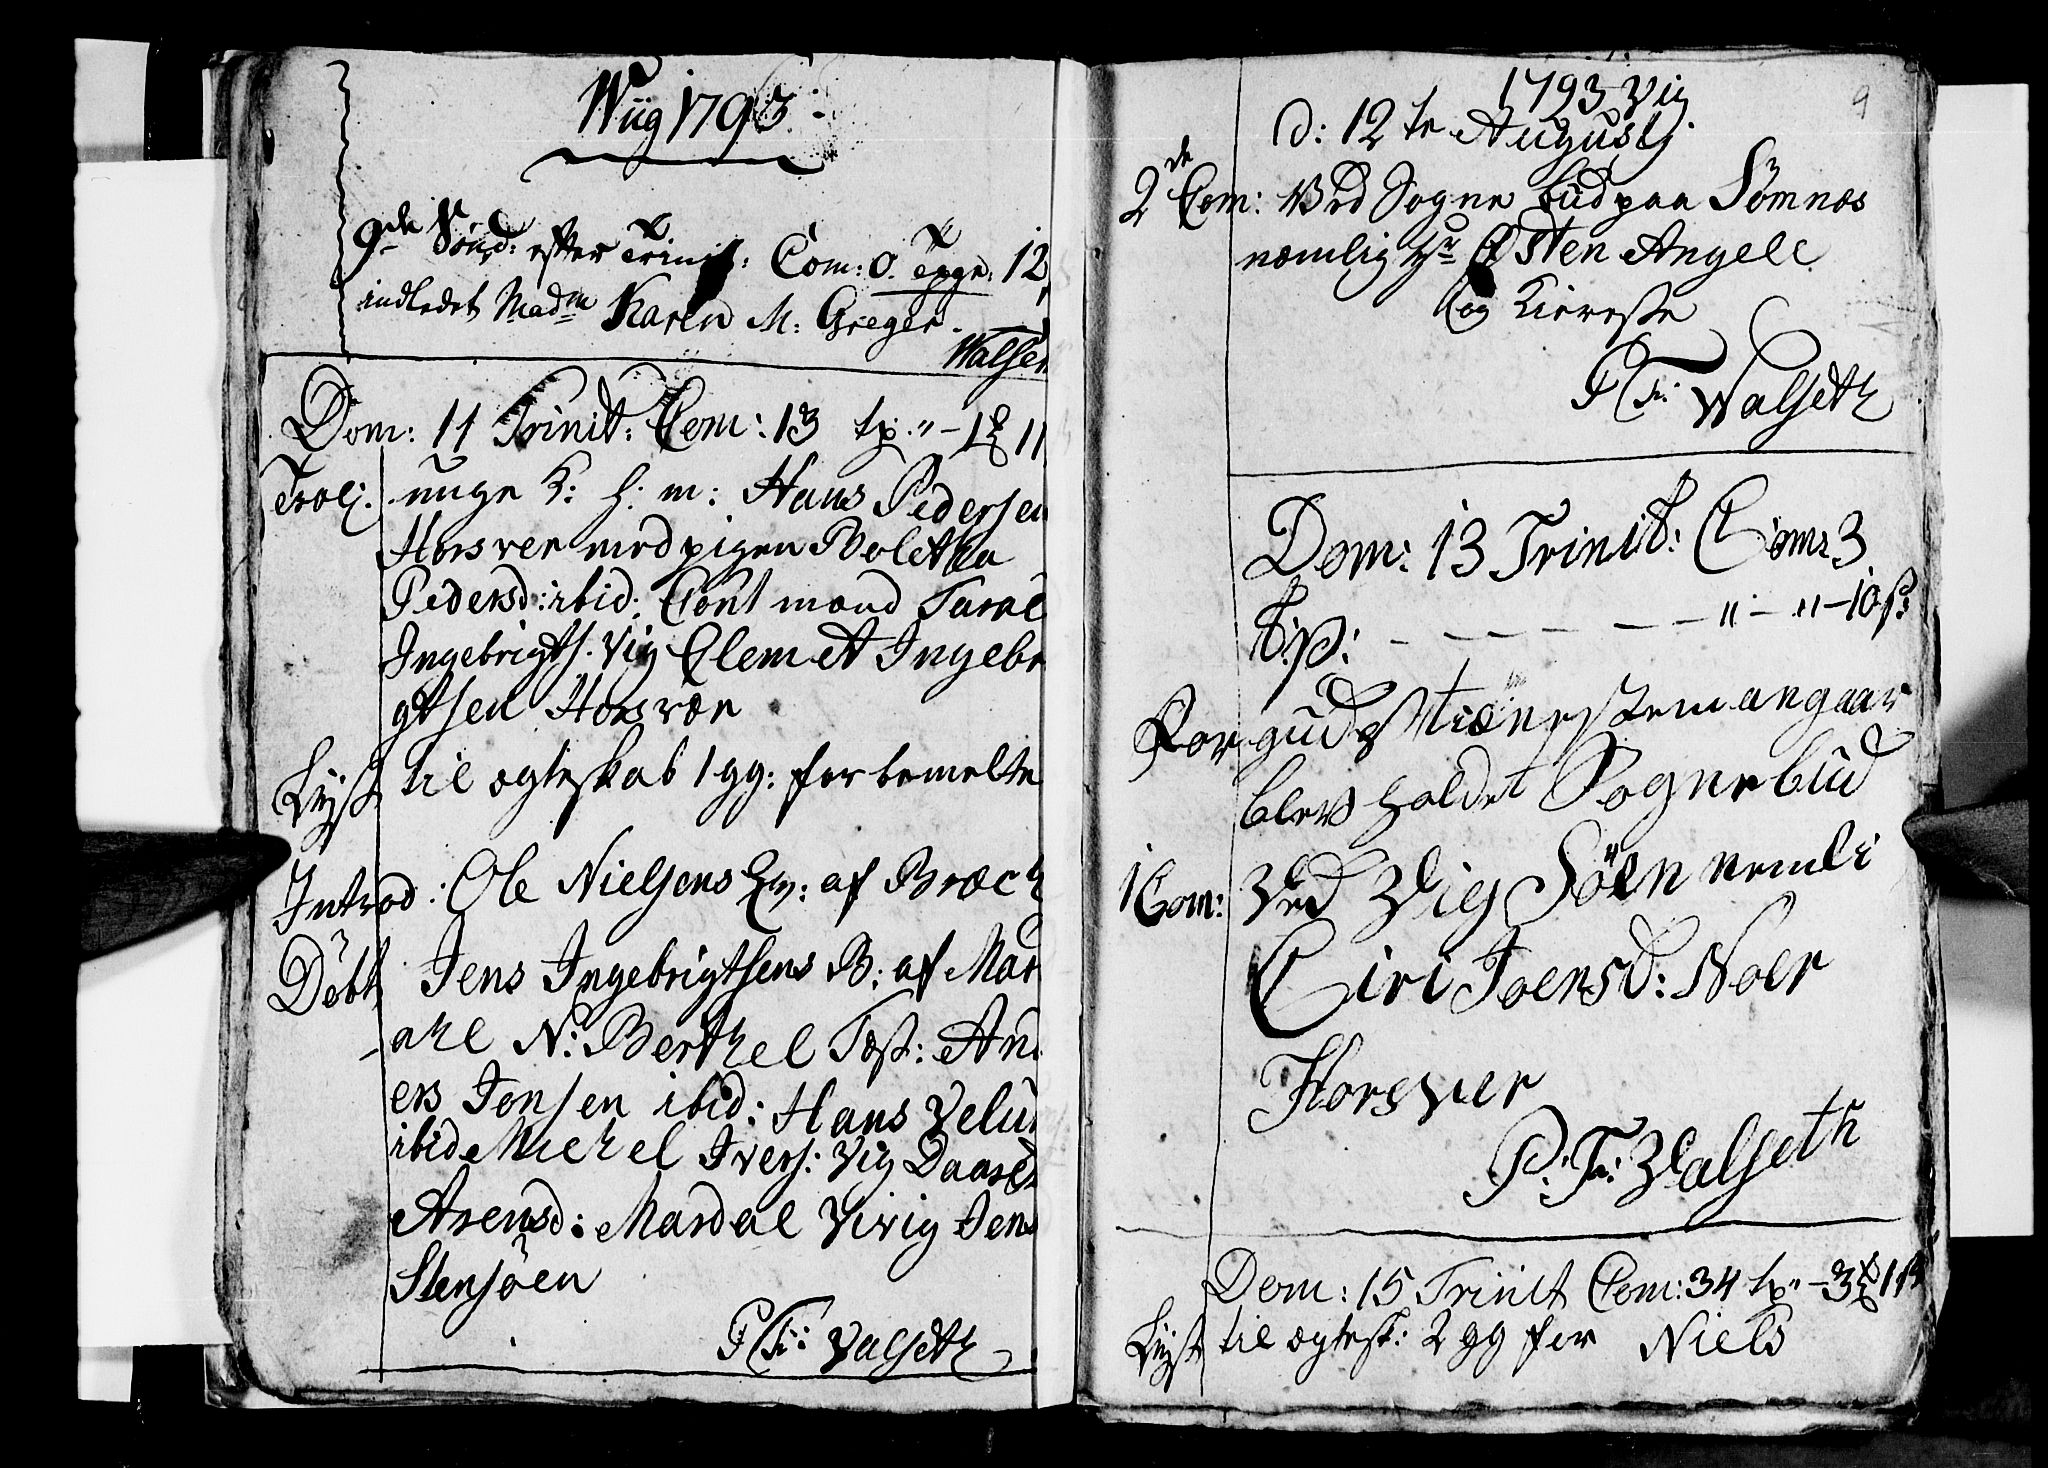 Wiig 1793
9de Sönd: efter Trinit: Com: 0. Tpge: 12
indledet Madm Karen M. Greger.
Walset
Dom: 11 Trinit: Com: 13 tp. " - 1 11
Trol: unge K: h: m: Hans Pedersen
Horsver med pigen Boletha
Pedersd: ibid: Cont mænd Taral
Ingebrigts. Vig Clemet Ingebr
gtsen Horsvær
Lyst til ægteskab 1 gg: for bemelte
Introd: Ole Nielsens Hu: af Bræch
Döbt Jens Ingebrigtsens B: af Mar
ahl N: Berthel Test: And
ers Jonsen ibid: Hans Velu
ibid Michel Ivers: Vig Daaret
Arensd: Mardal Vivig Jens
Stensöen
P Fr: Valseth
9
1793 Vig
d: 12te Augustj
2de Com: Ved Sogne bud paa Sömnæs
næmlig Hr Østen Angell
og Kiereste
P Fr: Walseth
Dom: 13 Trinit: Com: 3
tp: - - - - - - " - " - 10 s:
For guds tiænesten angaar
blev holdet Sognebud
1 Com: Ved Vig Söen nemli
Ciri Joensd: Noer
Horsver
P: Fr: Valseth
Dom: 15 Trinit Com: 34 tp " - 3 14
Lyst til ægtesk: 2 gg for Niels